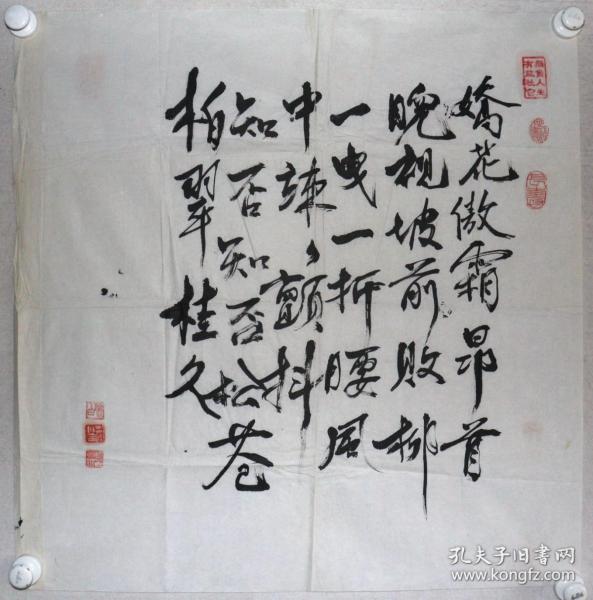 嬌花傲霜昂首
睨視坡前敗柳
一曳一折腰風
中竦々顫抖
知否知否松蒼
柏翠桂久
孔夫子旧书网
www.kongfz.com